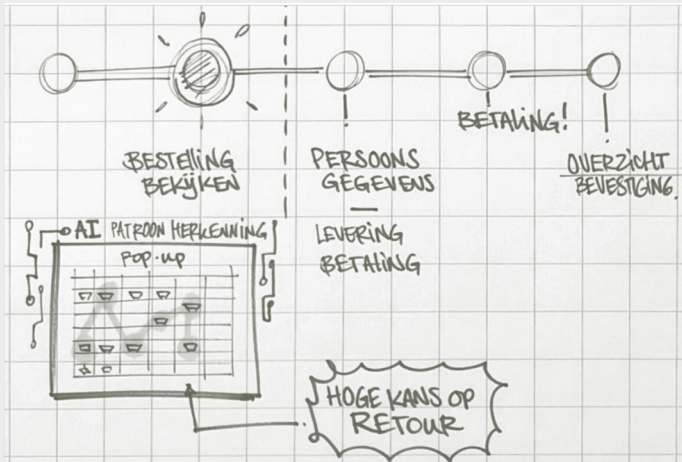 BESTELLING
BEKIJKEN
PERSOONS
GEGEVENS
LEVERING
BETALING
BETALING!
OVERZICHT
BEVESTIGING.
AI PATROON HERKENNING
POP-UP
HOGE KANS OP
RETOUR